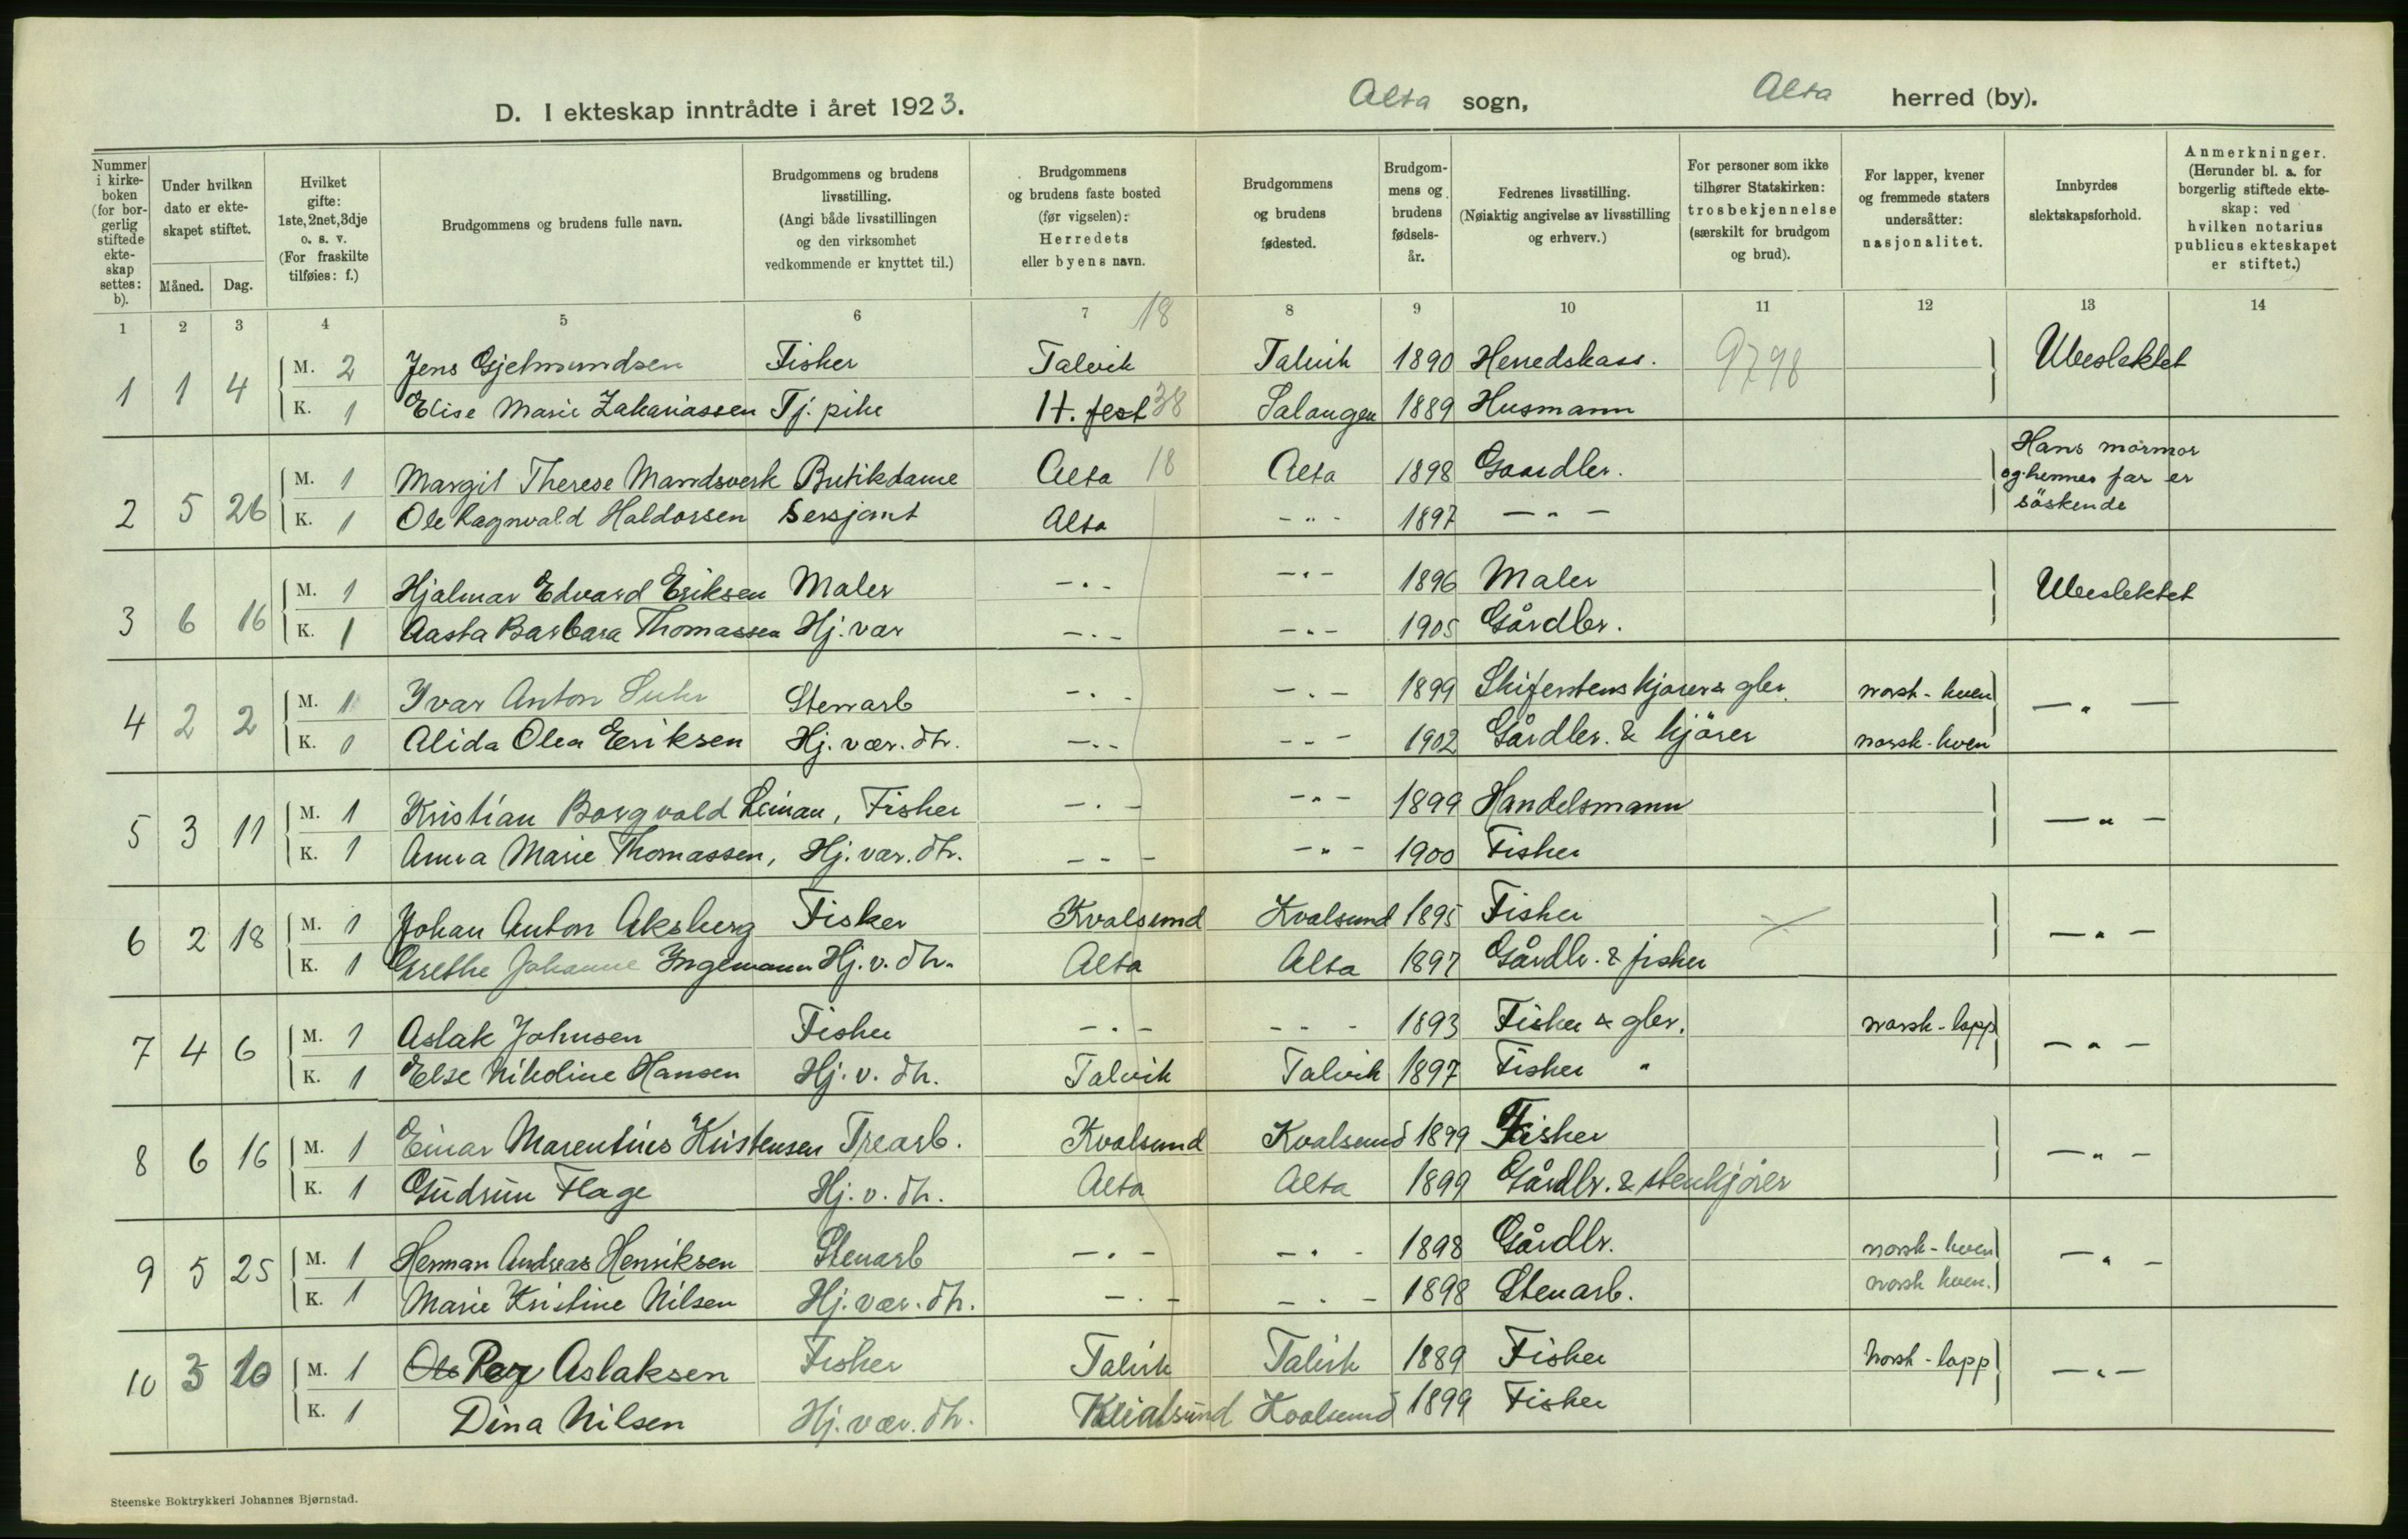 D. I ekteskap inntrådte i året 1923. Alta sogn, Alta herred (by).
Nummer i kirke-boken (for bor-gerlig stiftede ekte-skap settes: b).
Under hvilken dato er ekte-skapet stiftet.
Måned. Dag.
Hvilket gifte: 1ste, 2net, 3dje o. s. v. (For fraskilte tilføies: f.)
Brudgommens og brudens fulle navn.
Brudgommens og brudens livsstilling. (Angi både livsstillingen og den virksomhet vedkommende er knyttet til.)
Brudgommens og brudens faste bosted (før vigselen): Herredets eller byens navn.
Brudgommens og brudens fødested.
Brudgom-mens og brudens fødsels-år.
Fedrenes livsstilling. (Nøiaktig angivelse av livsstilling og erhverv.)
For personer som ikke tilhører Statskirken: trosbekjennelse (særskilt for brudgom og brud).
For lapper, kvener og fremmede staters undersåtter: nasjonalitet.
Innbyrdes slektskapsforhold.
Anmerkninger. (Herunder bl. a. for borgerlig stiftede ekte-skap: ved hvilken notarius publicus ekteskapet er stiftet.)
1 2 3 4 5 6 7 8 9 10 11 12 13 14
18
1 1 4 M. 2 Jens Gjelmundsen Fisker Talvik Talvik 1890 Herredskass. 9798 Ubeslektet
K. 1 Elise Marie Zakariassen Tj. pike H. fest 38 Salangen 1889 Husmann
2 5 26 M. 1 Margit Therese Mandsverk Butikdame Alta 18 Alta 1898 Gaardbr. Hans mormor
og hennes far er
K. 1 Ole Ragnvald Haldorsen Sersjant Alta - " - 1897 - " - söskende
3 6 16 M. 1 Hjalmar Edvard Eriksen Maler - " - - " - 1896 Maler Ubeslektet
K. 1 Aasta Barbara Thomassen Hj. vær - " - - " - 1905 Gårdbr.
4 2 2 M. 1 Yvar Anton Suhr Stenarb - " - - " - 1899 Skiferstenskjører & gbr. norsk-kven - " -
K. 0 Alida Olea Eriksen Hj. vær. dtr. - " - - " - 1902 Gårdbr. & kjörer norsk-kven
5 3 11 M. 1 Kristian Borgvald Leinan, Fisker - " - - " - 1899 Handelsmann - " -
K. 1 Anna Marie Thomassen, Hj. vær. dtr. - " - - " - 1900 Fisker
6 2 18 M. 1 Johan Anton Aksberg Fisker Kvalsund Kvalsund 1895 Fisker - " -
K. 1 Grethe Johanne Ingemann Hj. v. dtr. Alta Alta 1897 Gårdbr. & fisker
7 4 6 M. 1 Aslak Johnsen Fisker - " - - " - 1893 Fisker & gbr. norsk-lapp - " -
K. 1 Else Nikoline Hansen Hj. v. dtr. Talvik Talvik 1897 Fisker "
8 6 16 M. 1 Einar Marentius Kristensen Trearb. Kvalsund Kvalsund 1899 Fisker - " -
K. 1 Gudrun Flage Hj. v. dtr. Alta Alta 1899 Gårdbr. & stenkjörer
9 5 25 M. 1 Herman Andreas Henriksen Stenarb - " - - " - 1898 Gårdbr. norsk-kven - " -
K. 1 Marie Kristine Nilsen Hj. vær. dtr. - " - - " - 1898 Stenarb. norsk kven.
10 3 10 M. 1 Ole Per Aslaksen Fisker Talvik Talvik 1889 Fisker Norsk-lapp - " -
K. 1 Dina Nilsen Hj. vær. dtr. Kvalsund Kvalsund 1899 Fisker
Steenske Boktrykkeri Johannes Bjørnstad.